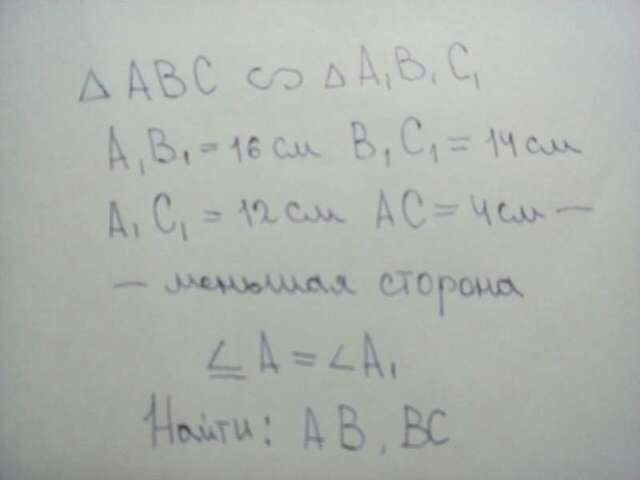 △ ABC ∽ △ A₁B₁C₁
A₁B₁ = 16 см B₁C₁ = 14 см
A₁C₁ = 12 см AC = 4 см —
— меньшая сторона
∠A = ∠A₁
Найти: AB, BC